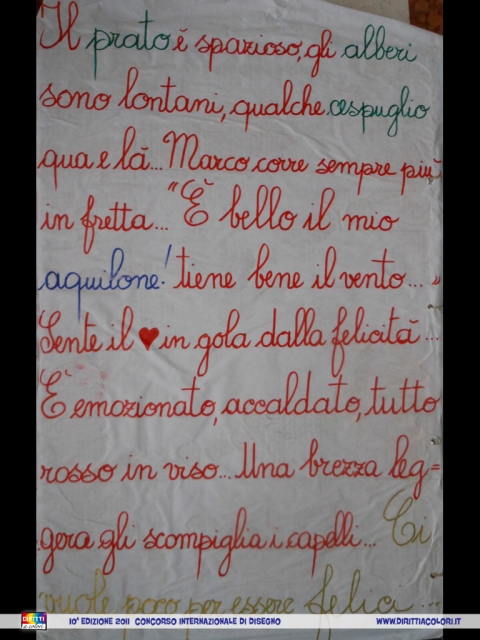 Il prato è spazioso, gli alberi
sono lontani, qualche cespuglio
qua e là... Marco corre sempre più
in fretta... "È bello il mio
aquilone! tiene bene il vento..."
Sente il ♥ in gola dalla felicità...
È emozionato, accaldato, tutto
rosso in viso... Una brezza leg=
gera gli scompiglia i capelli... Ci
vuole poco per essere felici...
DIRITTI a colori
10ª EDIZIONE 2011 CONCORSO INTERNAZIONALE DI DISEGNO
WWW.DIRITTIACOLORI.IT